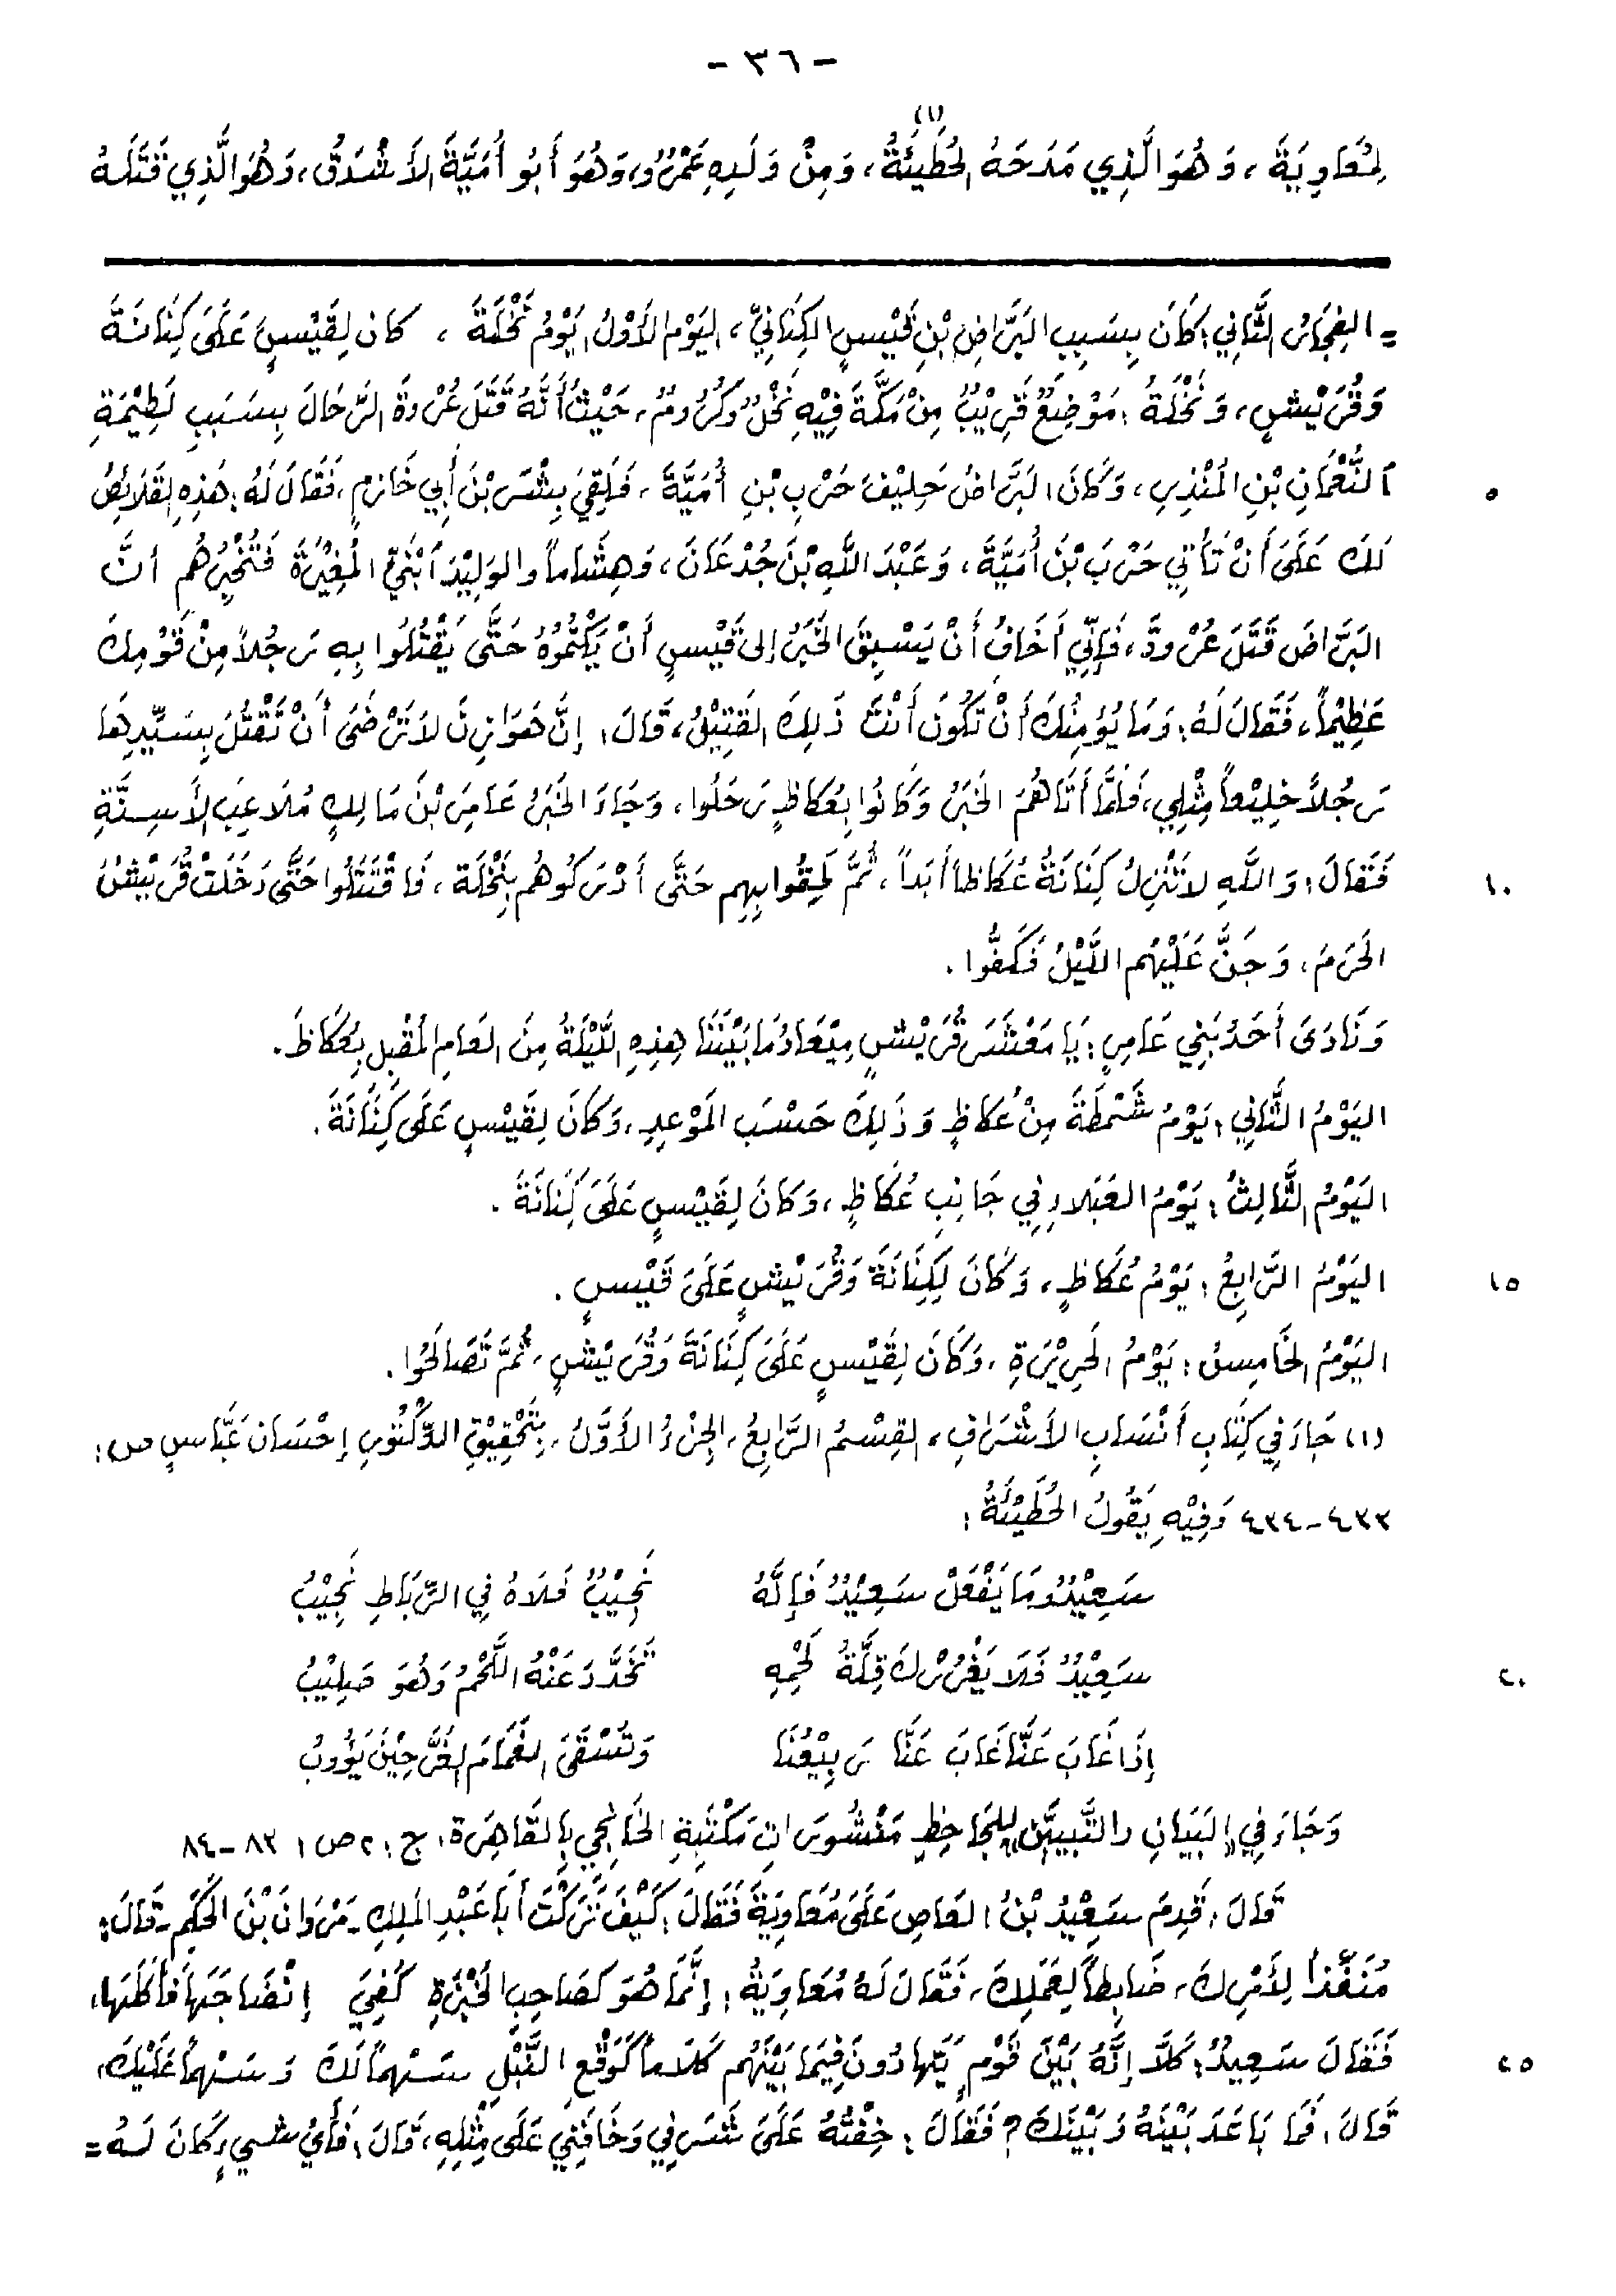 - ٣٦ -
لِمُعَاوِيَةَ، وَهُوَ الَّذِي مَدَحَهُ الحُطَيْئَةُ(١)، وَمِنْ وَلَدِهِ عَمْرُو، وَهُوَ أَبُو أُمَيَّةَ الأَشْدَقُ، وَهُوَ الَّذِي قَتَلَهُ
= الفِجَارُ الثَّانِي: كَانَ بِسَبَبِ البَرَّاضِ بْنِ قَيْسٍ الكِنَانِيِّ، اليَوْمُ الأَوَّلُ يَوْمُ نَخْلَةَ، كان لِقَيْسٍ عَلَى كِنَانَةَ
وَقُرَيْشٍ، وَنَخْلَةُ: مَوْضِعٌ قَرِيْبٌ مِنْ مَكَّةَ فِيْهِ نَخْلٌ وَكُرُومٌ، حَيْثُ أَنَّهُ قَتَلَ عُرْوَةَ الرَّحَّالَ بِسَبَبِ لَطِيْمَةِ
النُّعْمَانِ بْنِ المُنْذِرِ، وَكَانَ البَرَّاضُ حَلِيْفَ حَرْبِ بْنِ أُمَيَّةَ، فَلَقِيَ بِشْرَ بْنَ أَبِي خَازِمٍ، فَقَالَ لَهُ: هَذِهِ القَلاَئِصُ
٥
لَكَ عَلَى أَنْ تَأْتِي حَرْبَ بْنَ أُمَيَّةَ، وَعَبْدَ اللهِ بْنَ جُدْعَانَ، وَهِشَاماً والوَلِيْدَ ابْنَيِّ المُغِيْرَةِ فَتُخْبِرُهُم أنَّ
البَرَّاضَ قَتَلَ عُرْوَةَ، فَإِنِّي أَخَافُ أَنْ يَسْبِقَ الخَبَرُ إلى قَيْسٍ أَنْ يَكْتُمُوْهُ حَتَّى يَقْتُلُوا بِهِ رَجُلاً مِنْ قَوْمِكَ
عَظِيْماً، فَقَالَ لَهُ: وَمَا يُؤْمِنُكَ أَنْ تَكُونَ أَنْتَ ذَلِكَ القَتِيْلُ، قَالَ: إنَّ هَوَازِنَ لاَ تَرْضَى أَنْ تَقْتُلَ بِسَيِّدِهَا
رَجُلاً خَلِيْعاً مِثْلِي، فَلَمَّا أَتَاهُمُ الخَبَرُ وَكَانُوا بِعُكَاظٍ رَحَلُوا، وَجَاءَ الخَبَرُ عَامِرَ بْنَ مَالِكٍ مُلاَعِبَ الأَسِنَّةِ
فَقَالَ: وَاللهِ لاَ تَنْزِلُ كِنَانَةُ عُكَاظاً أَبَداً، ثُمَّ لَحِقُوا بِهِم حَتَّى أَدْرَكُوهُم بِنَخْلَةَ، فَاقْتَتَلُوا حَتَّى دَخَلَتْ قُرَيْشٌ
١٠
الحَرَمَ، وَجَنَّ عَلَيْهُم اللَّيْلُ فَكَفُّوا.
وَنَادَى أَحَدُ بَنِي عَامِرٍ: يَا مَعْشَرَ قُرَيْشٍ مِيْعَادُ مَا بَيْنَنَا هَذِهِ اللَّيْلَةُ مِنَ العَامِ المُقْبِلِ بِعُكَاظَ.
اليَوْمُ الثَّانِي: يَوْمُ شَمْطَةَ مِنْ عُكَاظٍ وَذَلِكَ حَسْبَ المَوْعِدِ، وَكَانَ لِقَيْسٍ عَلَى كِنَانَةَ.
اليَوْمُ الثَّالِثُ: يَوْمُ العَبَلاَءِ فِي جَانِبِ عُكَاظٍ، وَكَانَ لِقَيْسٍ عَلَى كِنَانَةَ.
اليَوْمُ الرَّابِعُ: يَوْمُ عُكَاظٍ، وَكَانَ لِكِنَانَةَ وَقُرَيْشٍ عَلَى قَيْسٍ.
١٥
اليَوْمُ الخَامِسُ: يَوْمُ الحَرِيْرَةِ، وَكَانَ لِقَيْسٍ عَلَى كِنَانَةَ وَقُرَيْشٍ، ثُمَّ تَصَالَحُوا.
(١) جَاءَ فِي كِتَابِ أَنْسَابِ الأَشْرَافِ، القِسْمُ الرَّابِعُ، الجُزْءُ الأَوَّلُ، بِتَحْقِيْقِ الدُّكْتُورِ إحْسَان عَبَّاسٍ ص:
٤٣٣-٤٣٤ وَفِيْهِ يَقُولُ الحُطَيْئَةُ:
سَعِيْدٌ وَمَا يَفْعَلْ سَعِيْدٌ فَإِنَّهُ نَجِيْبٌ فَلاَهُ فِي الرِّبَاطِ نَجِيْبُ
سَعِيْدٌ فَلاَ يَغْرُرْكَ قِلَّةُ لَحْمِهِ تَخَدَّدَ عَنْهُ اللَّحْمُ وَهُوَ صَلِيْبُ
٢٠
إذَا غَابَ عَنَّا غَابَ عَنَّا رَبِيْعُنَا وَنُسْقَى الغَمَامَ الغُرَّ حِيْنَ يَؤُوبُ
وَجَاءَ فِي «البَيَانِ والتَّبيِيْنِ» لِلجَاحِظِ مَنْشُورَاتِ مَكْتَبَةِ الخَانْجِي بِالقَاهِرَةِ، ج: ٢ ص: ٨٣-٨٤
قَالَ: قَدِمَ سَعِيْدُ بْنُ العَاصِ عَلَى مُعَاوِيَةَ فَقَالَ: كَيْفَ تَرَكْتَ أَبَا عَبْدِ المَلِكِ - مَرْوَانَ بْنَ الحَكَمِ - قَالَ:
مُنَفِّذاً لأَمْرِكَ، ضَابِطاً لِعَمَلِكَ، فَقَالَ لَهُ مُعَاوِيَةُ: إنَّمَا هُوَ كَصَاحِبِ الخُبْزَةِ كُفِيَ إنْضَاجَهَا فَأَكَلَهَا،
فَقَالَ سَعِيدٌ: كَلاَّ إنَّهُ بَيْنَ قَوْمٍ يَتَهَادُونَ فِيْمَا بَيْنَهُم كَلاَماً كَوَقْعِ النَّبْلِ سَهْماً لَكَ وَسَهْماً عَلَيْكَ،
٢٥
قَالَ: فَمَا بَاعَدَ بَيْنَهُ وَبَيْنَكَ؟ فَقَالَ: خِفْتُهُ عَلَى شَرَفِي وَخَافَنِي عَلَى مِثْلِهِ، قَالَ: فَأَيُّ شيءٍ كَانَ لَهُ =